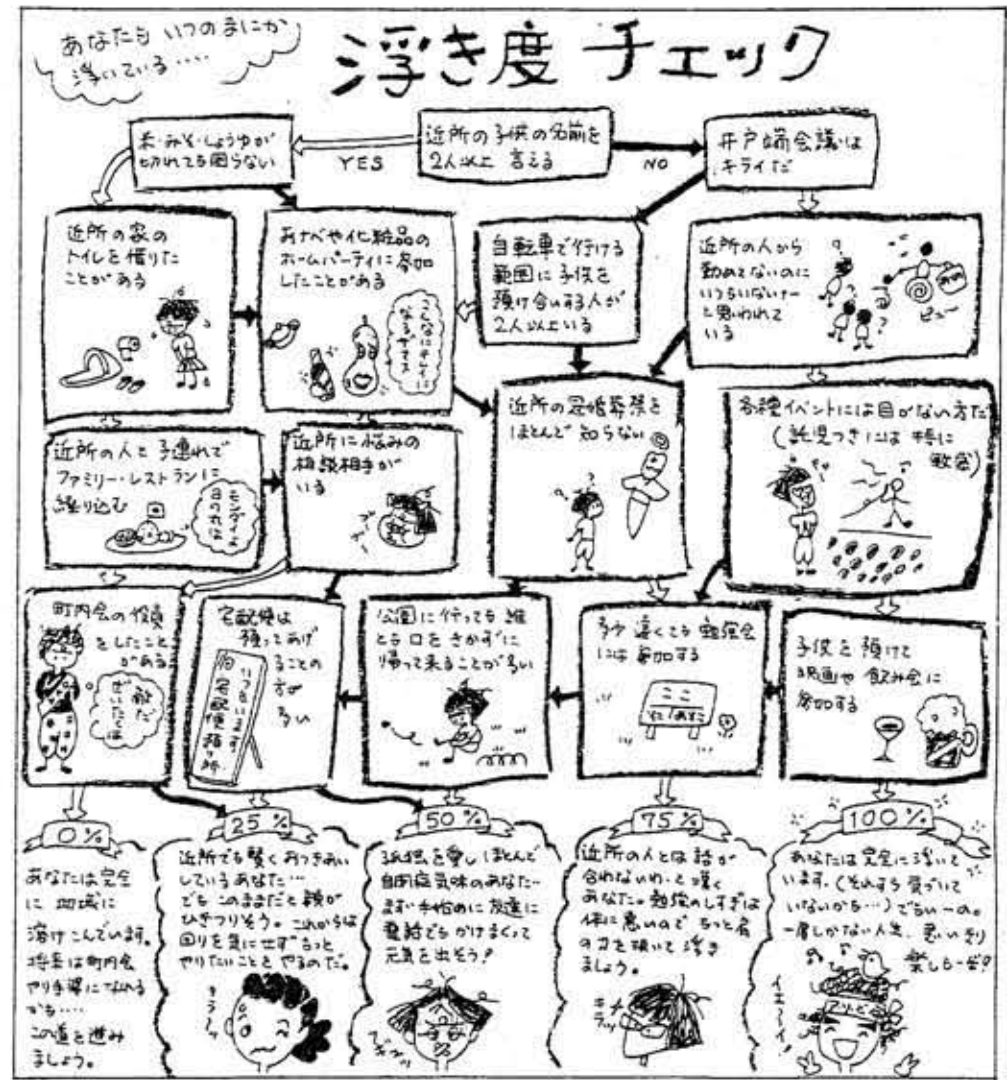 あなたも いつのまにか
浮いている‥‥
浮き度 チェック
米・みそ・しょうゆが
切れても困らない
YES
近所の子供の名前を
2人以上 言える
NO
井戸端会議は
キライだ
近所の家の
トイレを借りた
ことがある
あなべや化粧品の
ホームパーティに参加
したことがある
こんなにキレイに
なるザマス
自転車で行ける
範囲に子供を
預け合いする人が
2人以上いる
近所の人から
勤めてないのに
いつもいないナー
と思われて
いる
ピュー
近所の人と子連れで
ファミリー・レストランに
繰り込む
近所に悩みの
相談相手が
いる
近所の冠婚葬祭を
ほとんど知らない
各種イベントには目がない方だ
(託児つきには特に
敏感)
町内会の役員
をしたこと
がある
ぜいたくは
敵だ
宅配便は
預ってあげ
ることの
方が
多い
公園に行っても誰
とも口をきかずに
帰って来ることが多い
多少遠くても勉強会
には参加する
ここ
子供を預けて
映画や飲み会に
参加する
0%
25%
50%
75%
100%
あなたは完全
に地域に
溶けこんでいます。
将来は町内会
やり手婆になれる
かも‥‥
この道を進み
ましょう。
近所でも賢くおつきあい
しているあなた…
でもこのままだと顔が
ひきつりそう。これからは
回りを気にせずもっと
やりたいことをやるのだ。
孤独を愛しほとんど
自閉症気味のあなた…
まず手始めに友達に
電話でもかけまくって
元気を出そう!
近所の人とは話が
合わないわ…と嘆く
あなた。勉強のしすぎは
体に悪いのでもっと肩
の力を抜いて浮き
ましょう。
あなたは完全に浮いて
います。(それすら気づいて
いないかも…)でもいーの。
一度しかない人生、思いきり
楽しもーぜ!
イエーイ!